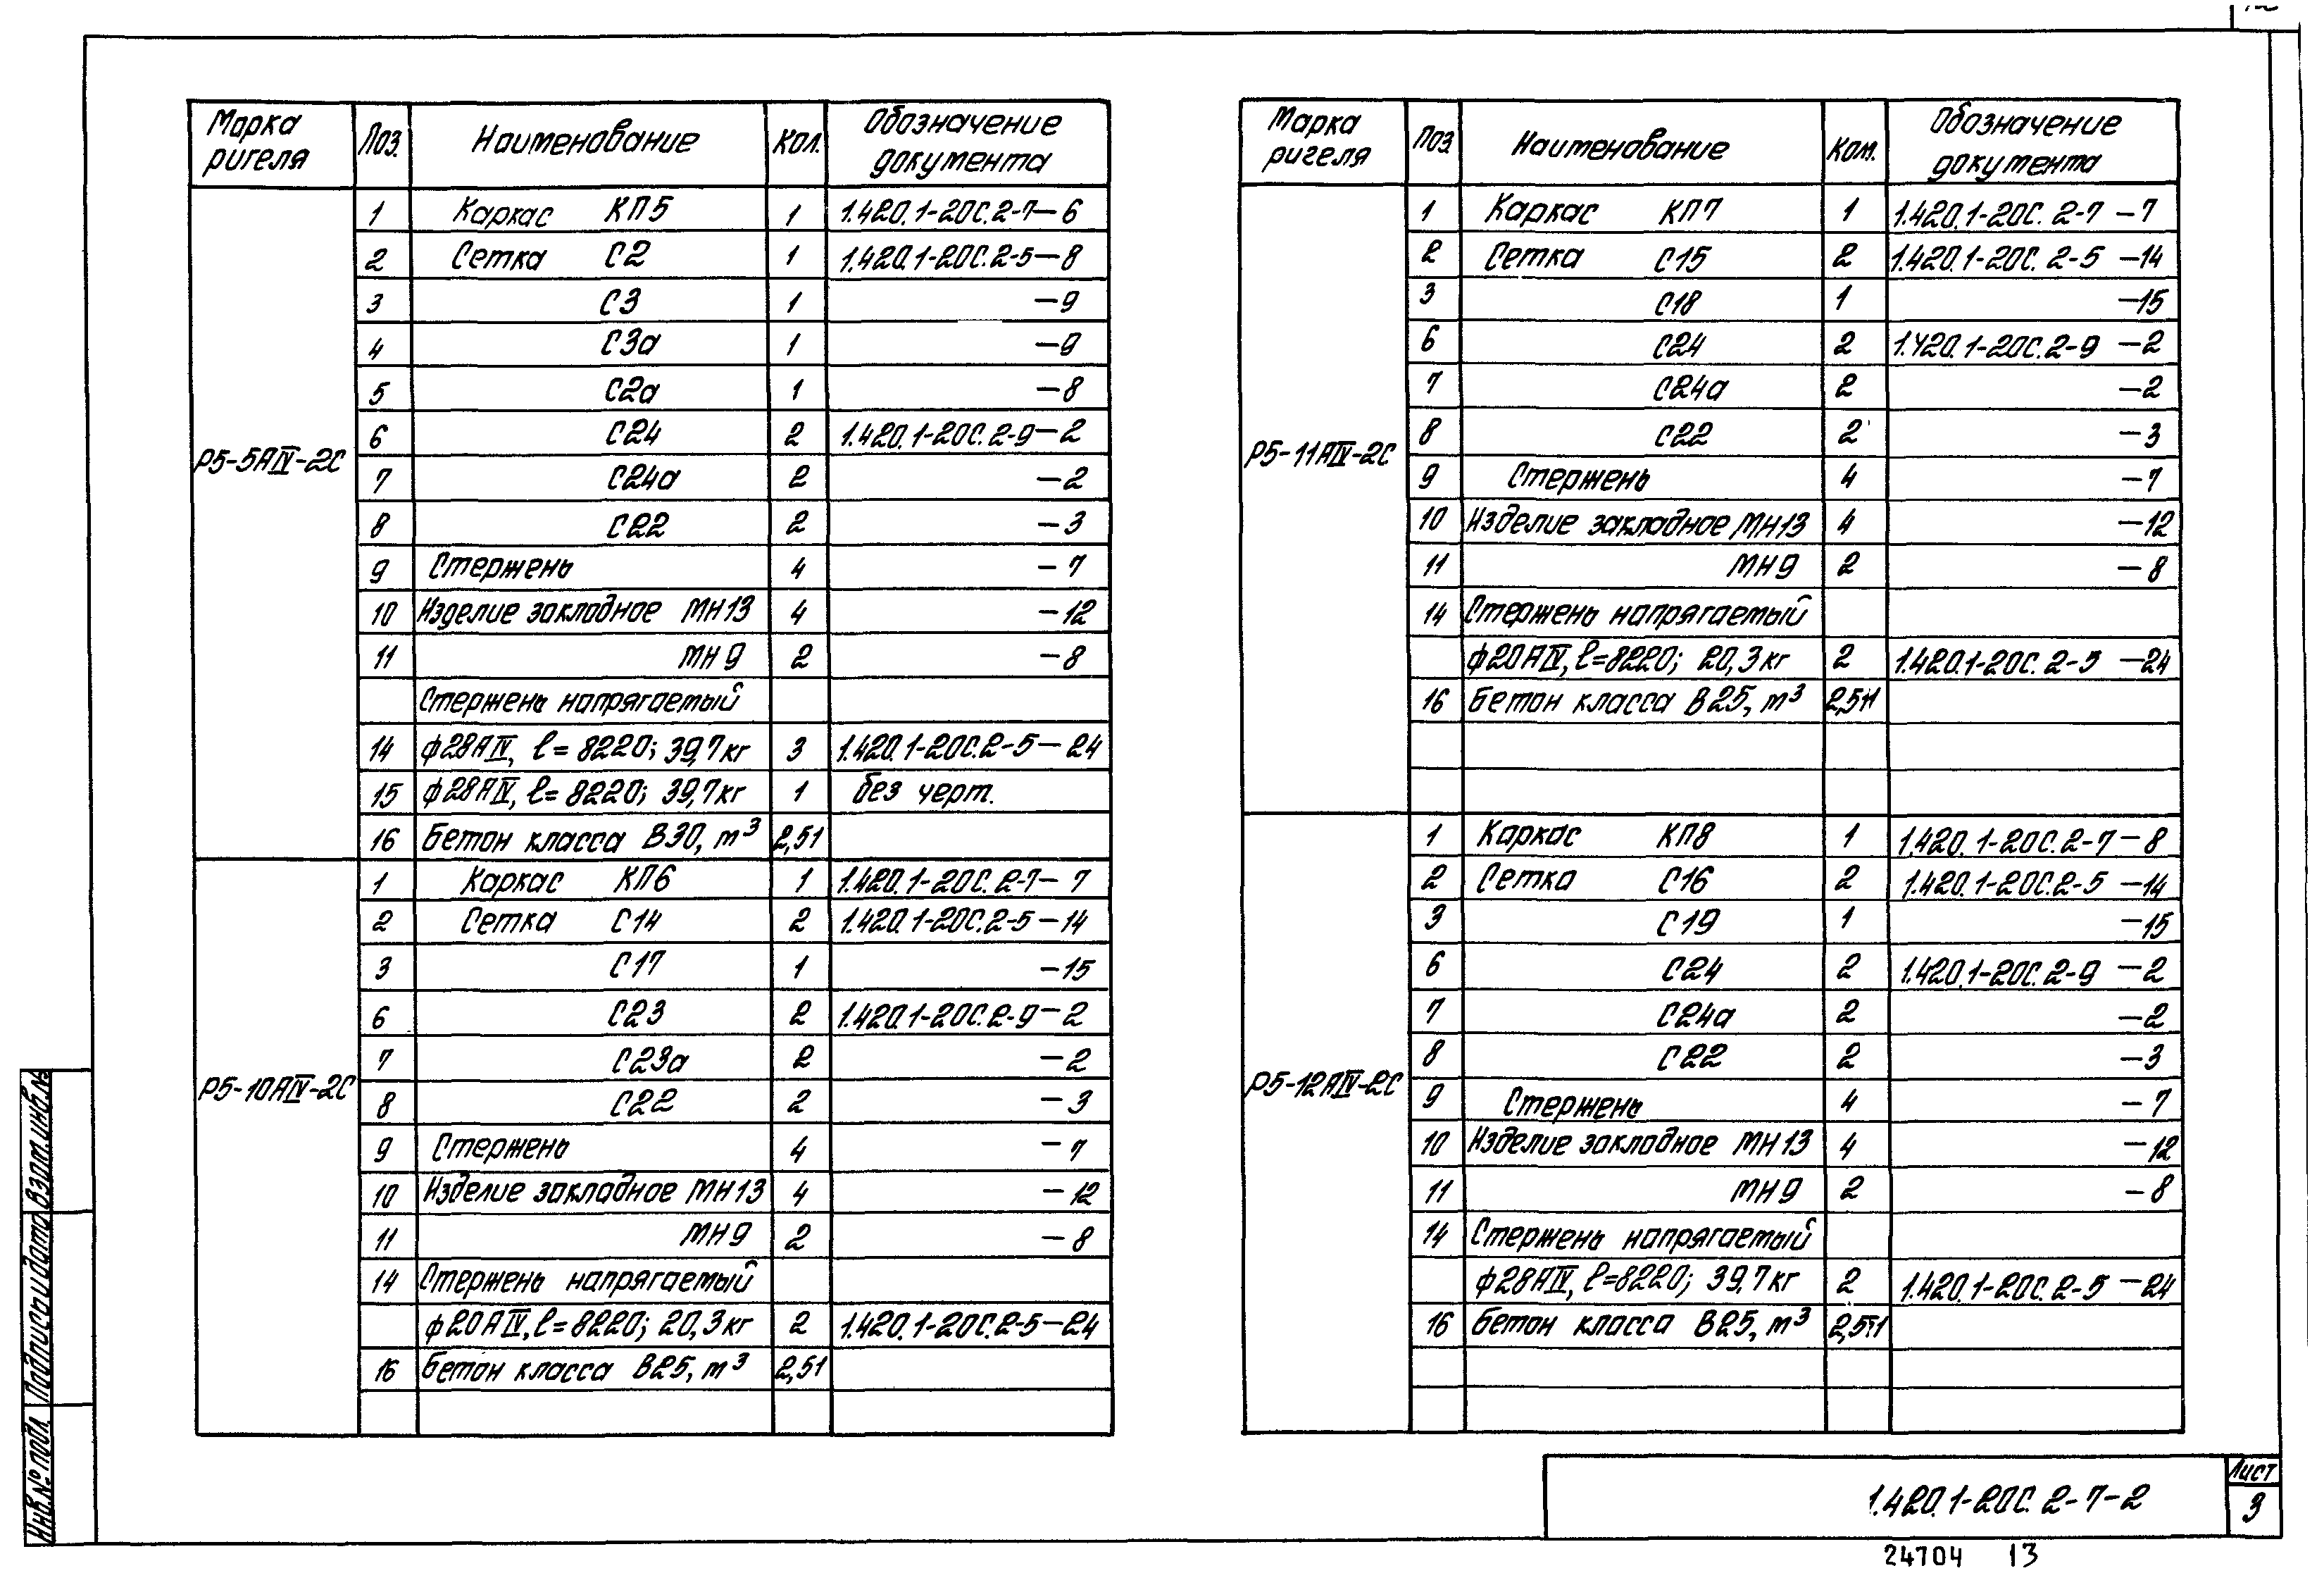 Марка ригеля Поз. Наименование Кол. Обозначение документа
Р5-5АIV-2С
1 Каркас КП5 1 1.420.1-20С.2-7-6
2 Сетка С2 1 1.420.1-20С.2-5-8
3 С3 1 -9
4 С3а 1 -9
5 С2а 1 -8
6 С24 2 1.420.1-20С.2-9-2
7 С24а 2 -2
8 С22 2 -3
9 Стержень 4 -7
10 Изделие закладное МН13 4 -12
11 МН9 2 -8
Стержень напрягаемый
14 ф28АIV, l=8220; 39,7кг 3 1.420.1-20С.2-5-24
15 ф28АIV, l=8220; 39,7кг 1 без черт.
16 Бетон класса В30, м³ 2,51
Р5-10АIV-2С
1 Каркас КП6 1 1.420.1-20С.2-7-7
2 Сетка С14 2 1.420.1-20С.2-5-14
3 С17 1 -15
6 С23 2 1.420.1-20С.2-9-2
7 С23а 2 -2
8 С22 2 -3
9 Стержень 4 -7
10 Изделие закладное МН13 4 -12
11 МН9 2 -8
14 Стержень напрягаемый
ф20АIV, l=8220; 20,3кг 2 1.420.1-20С.2-5-24
16 Бетон класса В25, м³ 2,51
Марка ригеля Поз Наименование Кол. Обозначение документа
Р5-11АIV-2С
1 Каркас КП7 1 1.420.1-20С.2-7-7
2 Сетка С15 2 1.420.1-20С.2-5-14
3 С18 1 -15
6 С24 2 1.420.1-20С.2-9-2
7 С24а 2 -2
8 С22 2 -3
9 Стержень 4 -7
10 Изделие закладное МН13 4 -12
11 МН9 2 -8
14 Стержень напрягаемый
ф20АIV, l=8220; 20,3кг 2 1.420.1-20С.2-5-24
16 Бетон класса В25, м³
Р5-12АIV-2С
1 Каркас КП8 1 1.420.1-20С.2-7-8
2 Сетка С16 2 1.420.1-20С.2-5-14
3 С19 1 -15
6 С24 2 1.420.1-20С.2-9-2
7 С24а 2 -2
8 С22 2 -3
9 Стержень 4 -7
10 Изделие закладное МН13 4 -12
11 МН9 2 -8
14 Стержень напрягаемый
ф28АIV, l=8220; 39,7кг 2 1.420.1-20С.2-5-24
16 Бетон класса В25, м³
Инв.№ подл. Подпись и дата Взам.инв.№
1.420.1-20С.2-7-2
Лист
3
24704 13